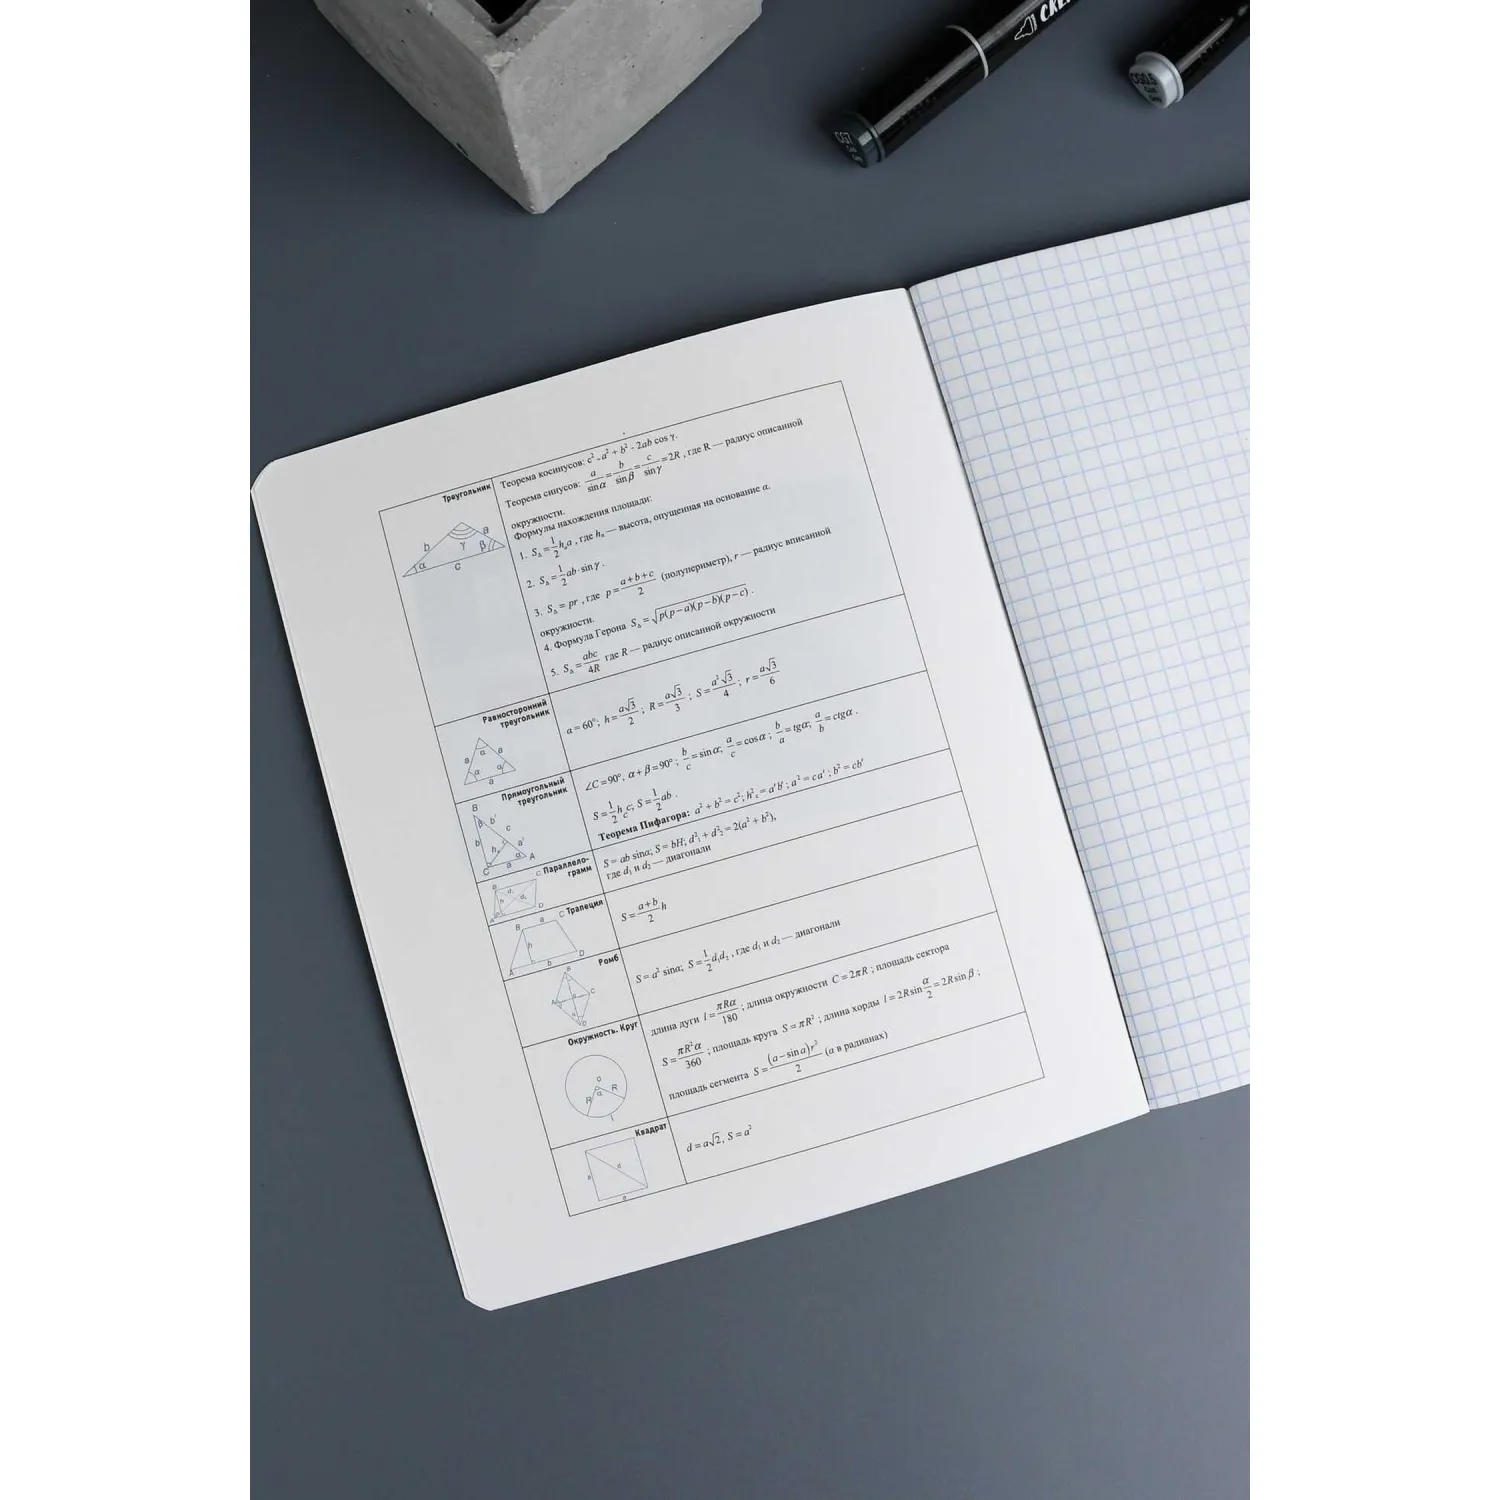 CG7
CG0.5
Треугольник
Теорема косинусов: c²-a² + b² - 2ab cos γ.
Теорема синусов: a/sinα = b/sinβ = c/sinγ = 2R , где R — радиус описанной
окружности.
Формулы нахождения площади:
1. S△ = 1/2 hₐa , где hₐ — высота, опущенная на основание a.
2. S△ = 1/2 ab·sinγ .
3. S△ = pr , где p = a+b+c/2 (полупериметр), r — радиус вписанной
окружности.
4. Формула Герона S△ = √p(p−a)(p−b)(p−c) .
5. S△ = abc/4R где R — радиус описанной окружности
b a γ β α c
Равносторонний
треугольник
α = 60°; h = a√3/2 ; R = a√3/3 ; S = a²√3/4 ; r = a√3/6
a α a α α a
Прямоугольный
треугольник
∠C = 90°, α + β = 90° ; b/c = sinα; a/c = cosα ; b/a = tgα; a/b = ctgα .
S = 1/2 h_c c; S = 1/2 ab .
Теорема Пифагора: a² + b² = c²; h²_c = a'b' ; a² = ca' ; b² = cb'
B β b' c b h a' α A C a
Параллело-
грамм
S = ab sinα; S = bH; d²₁ + d²₂ = 2(a² + b²),
где d₁ и d₂ — диагонали
Трапеция
S = a+b/2 h
B a C h A b D
Ромб
S = a² sinα; S = 1/2 d₁d₂ , где d₁ и d₂ — диагонали
Окружность. Круг
длина дуги l = πRα/180 ; длина окружности C = 2πR ; площадь сектора
S = πR²α/360 ; площадь круга S = πR² ; длина хорды l = 2Rsin α/2 = 2Rsin β ;
площадь сегмента S = (a − sin a)r²/2 (a в радианах)
o R α R l
Квадрат
d = a√2, S = a²
d a a